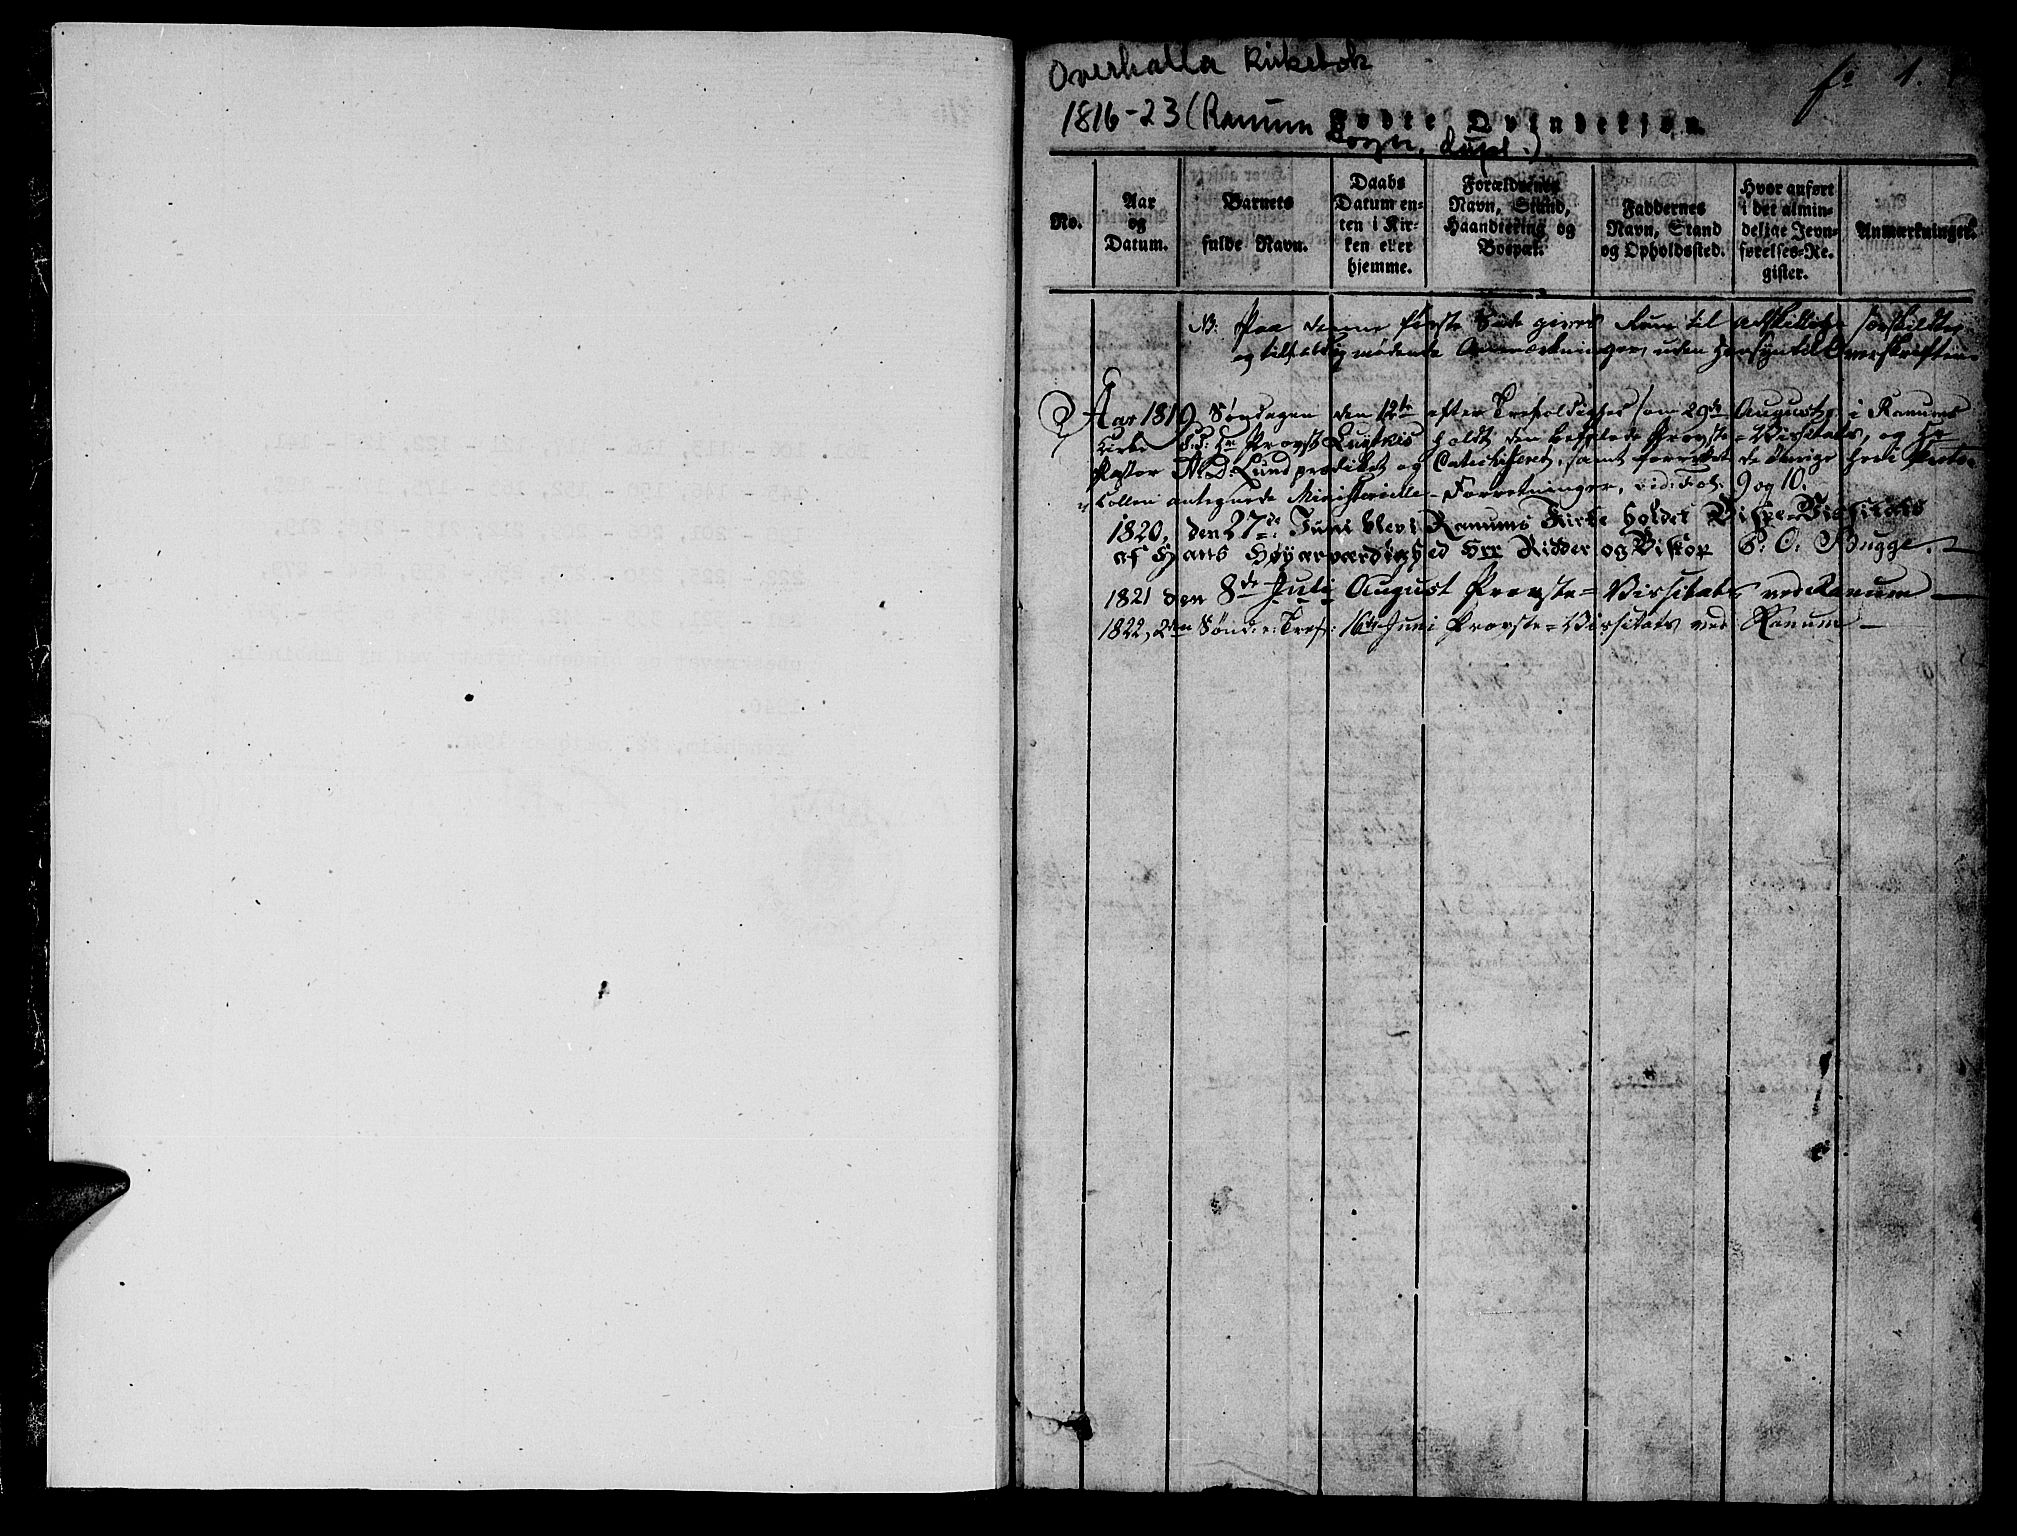 Overhalla Kirkebok
fo 1.
1816-23 (Ranum
Fødte Qvindekiøn.
Sogn, dupl.)
No.
Aar
og
Datum.
Barnets
fulde Navn.
Daabs
Datum en-
ten i Kir-
ken eller
hjemme.
Forældrenes
Navn, Stand,
Haandtering og
Bopæl.
Faddernes
Navn, Stand
og Opholdssted.
Hvor anført
i det almin-
delige Jevn-
førelses-Re-
gister.
Anmærkninger.
NB: Paa denne første Side gives Rum til adskillige særskildte
og tilfældig mødende Anmærkninger, uden Hensyn til Overskriften.
Aar 1819, Søndagen den 12te efter Trefoldighed som 29de August, i Ranums
Kirke Hr Provst holdt den befalede Provste-Visitats, og Hr
Pastor Lund prædiket og Catechiseret, samt forrettet de øvrige her i Proto-
collen antegnede Ministerielle-Forretninger, vid: Fol: 9 og 10.
1820, den 27de Juni blev i Ranums Kirke holdet Bispe-Visitats
af Hans Høyærværdighed Hrr Ridder og Biskop P: O: Bugge. —
1821 den 8de Juli August Provste-Visitats ved Ranum —
1822, 2den Sønd: e: Tref: 16de Juni Provste-Visitats ved Ranum —